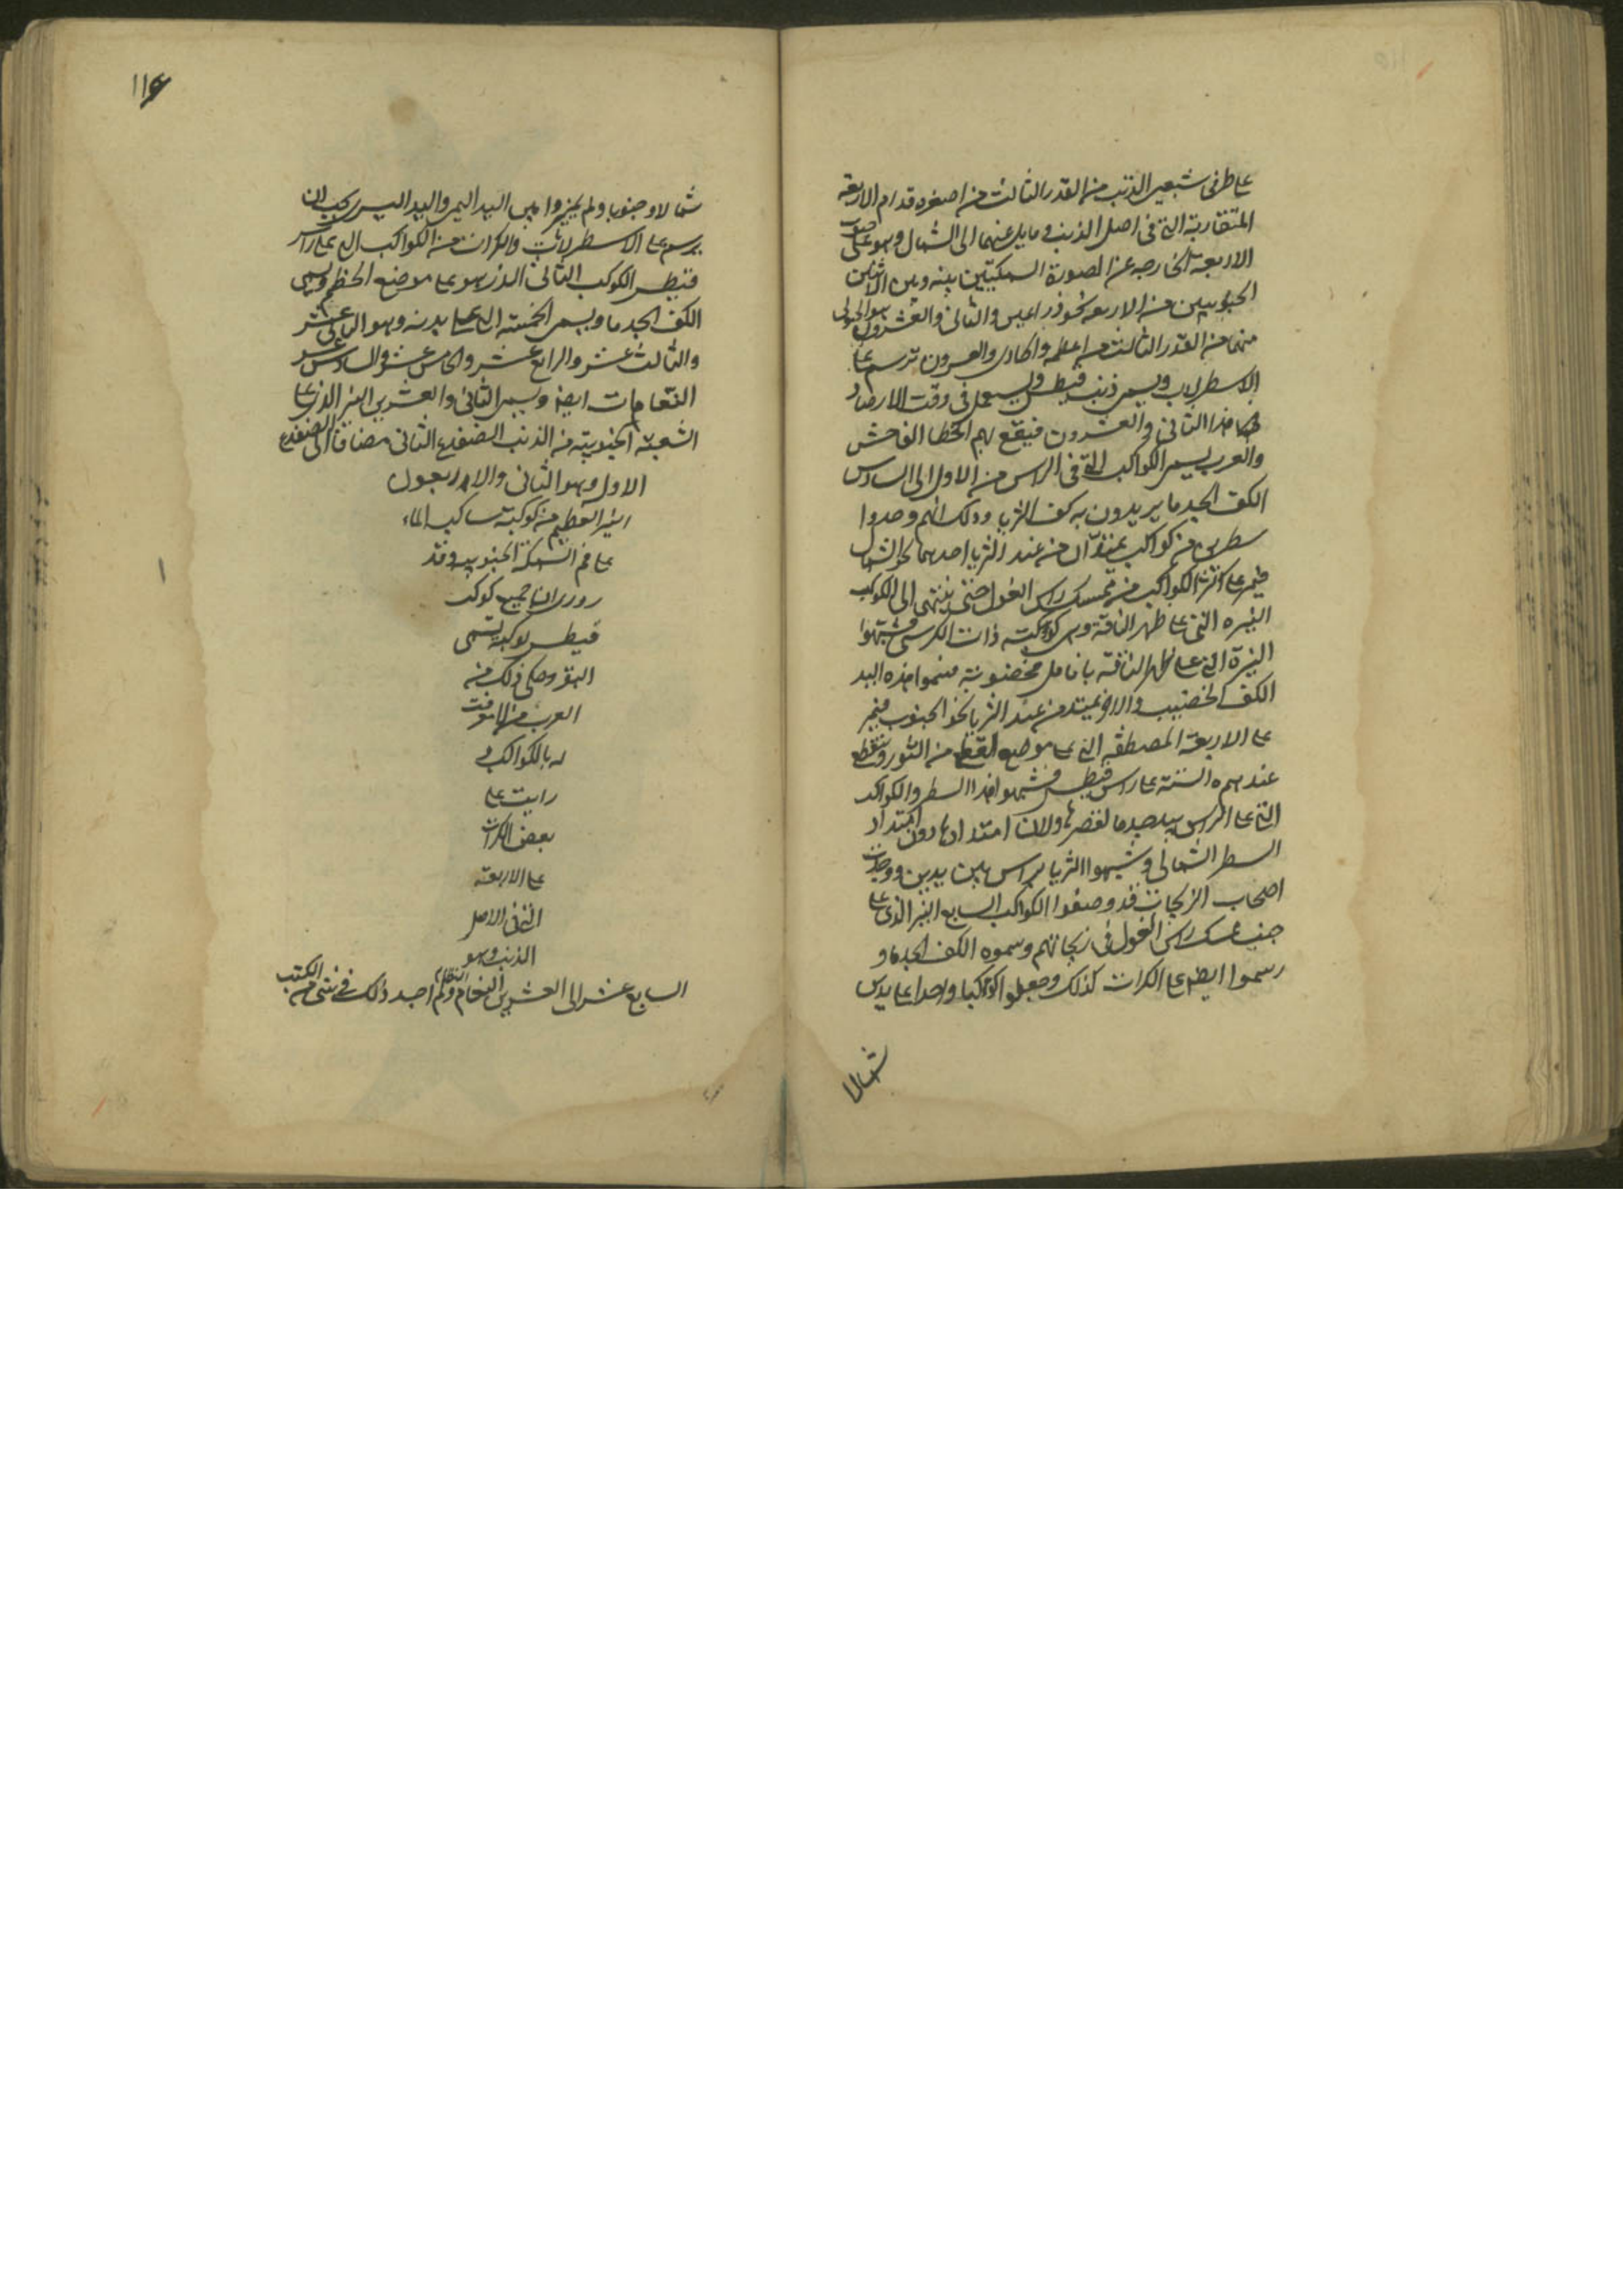 على طرفى شعبتى الذنب من القدر الثالث من اصغره قدام الاربعة
المتقاربة التى فى اصل الذنب و مايل عنهما الى الشمال وهو على صوب
الاربعة الخارجه عن الصورة السمكتين بينه وبين الاثنين
الجنوبيين من الاربعه نحو ذراعين والثانى والعشرون هو الجنوبى
منهما من القدر الثالث من اعظمه والحادى والعسرون ترسم على
الاسطرلاب ويسمى ذنب قيطس ويستعمل فى وقت الارصاد
هذا الثانى والعشرون فيقع لهم الخطا الفاحش
والعرب يسمى الكواكب التى فى الراس من الاول الى السادس
الكف الجدما يريدون به كف الثريا وذلك انهم وجدوا
سطرين من كواكب يمتدان من عند الثريا احدهما نحو الشمال
فيمر على اكثر الكواكب من ممسك راس الغول حتى ينتهى الى الكواكب
النيره التى على ظهر الناقة وهى كوكبة ذات الكرسى وشبهوا
النيرة التى على ظهر الناقة بانامل مخضوبة فسموا هذه اليد
الكف الخضيب والاخر يمتد من عند الثريا نحو الجنوب فيمر
على الاربعة المصطفه التى على موضع القطع من الثور وينقطع
عند هذه الستة على راس قيطس وشبهوا هذا السطر والكواكب
التى على الراس بيد جدما لقصرها ولان امتدادها دون امتداد
السطر الشمالى وشبهوا الثريا براس بين يدين ووجدت
اصحاب الزيجات قد وصفوا الكواكب السابع النير الذى على
جنب ممسك راس الغول فى زيجاتهم وسموه الكف الجدما و
رسموا ايضا على الكرات كذلك وجعلوا كوكبا واحدا على يدين
شمالا
١١٤
شمالا و جنوبا ولم يميزوا بين اليد اليمنى واليد اليسرى يجب ان
يرسم على الاسطرلابات والكرات من الكواكب التى على راس
قيطس الكوكب الثانى الذى هو على موضع الخطم ويسمى
الكف الجدما ويسمى الخمسة التى على بدنه وهو الثانى عشر
والثالث عشر والرابع عشر والخامس عشر والسادس عشر
النعامات ايضا ويسمى الثانى والعشرين النير الذى على
الشعبة الجنوبية من الذنب الضفدع الثانى مضافا الى الضفدع
الاول وهو الثانى والاربعون
النير العظيم من كوكبة ساكب الماء
على فم السمكة الجنوبية وقد
روى ان جميع كوكب
قيطس يسمى
البقر وحكى ذلك من
العرب من لا معرفت
له بالكواكب و
رايت على
بعض الكرات
على الاربعة
التى فى الاصل
الذنب وهو
السابع عشر الى العشرين النعام النظام ولم اجد ذلك فى شى من الكتب